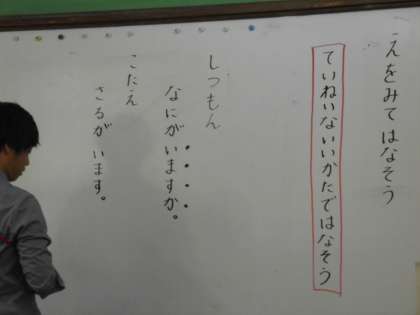 えをみてはなそう
ていねいないいかたではなそう
しつもん
なにがいますか。
こたえ
さるが います。